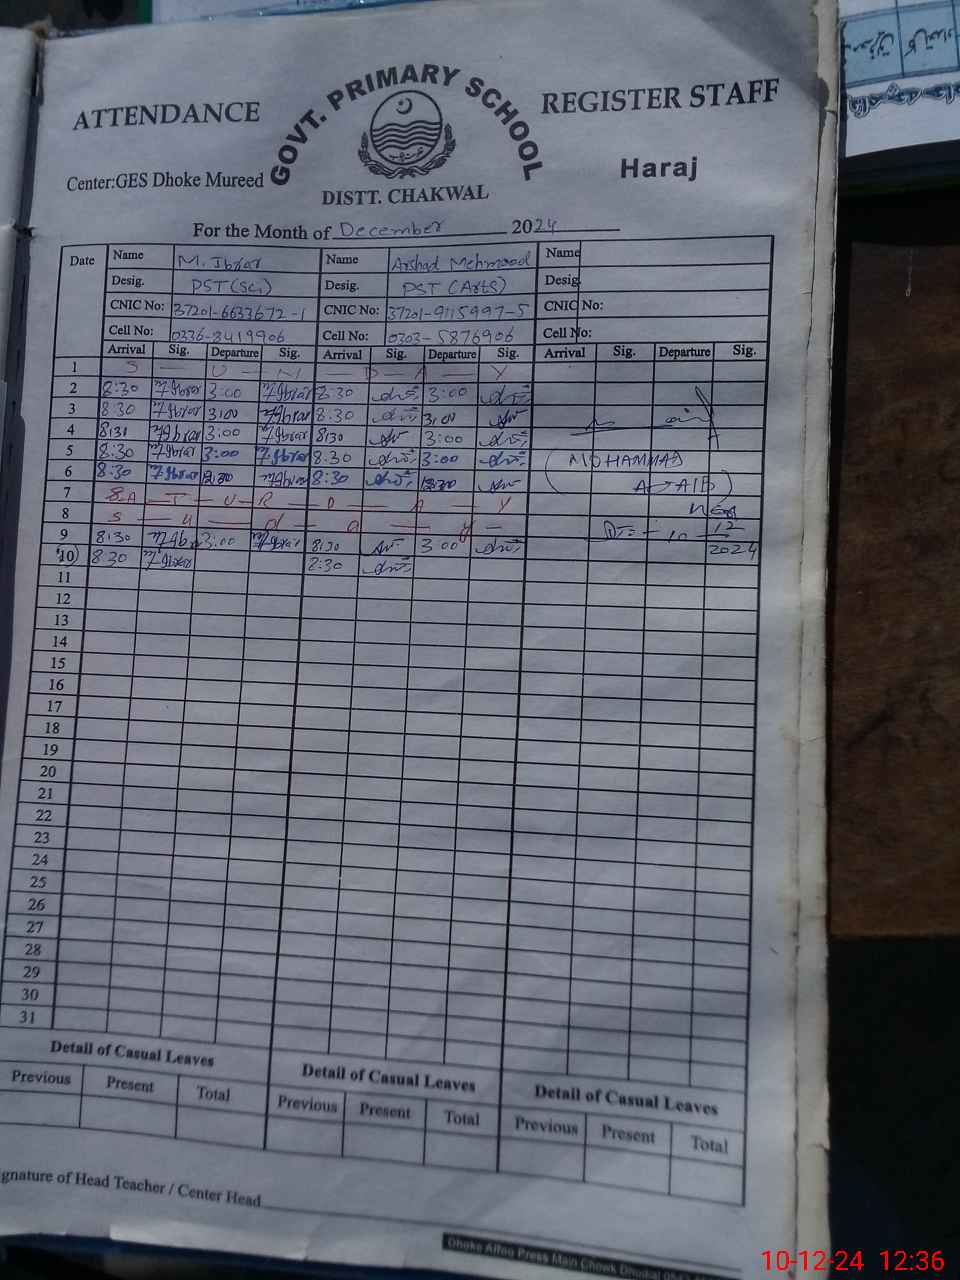 ATTENDANCE GOVT. PRIMARY SCHOOL REGISTER STAFF
Center:GES Dhoke Mureed Haraj
DISTT. CHAKWAL
For the Month of December 2024
Date Name M. Ibrar Name Arshad Mehmood Name
Desig. PST (Sci) Desig. PST (Arts) Desig.
CNIC No: 37201-6633672-1 CNIC No: 37201-9115997-5 CNIC No:
Cell No: 0336-8419906 Cell No: 0303-5876906 Cell No:
Arrival Sig. Departure Sig. Arrival Sig. Departure Sig. Arrival Sig. Departure Sig.
1 S U N D A Y
2 8:30 M Ibrar 3:00 M Ibrar 8:30 3:00
3 8:30 M Ibrar 3:00 M Ibrar 8:30 3:00
4 8:30 M Ibrar 3:00 M Ibrar 8:30 3:00
5 8:30 M Ibrar 3:00 M Ibrar 8:30 3:00 (MOHAMMAD
6 8:30 M Ibrar M Ibrar 8:30
7 SA T U R D A Y
8 S u n d a y
9 8:30 M Ib 3:00 M Ibrar 8:30 3:00 10 12
10 8:30 M Ibrar 8:30 2024
11
12
13
14
15
16
17
18
19
20
21
22
23
24
25
26
27
28
29
30
31
Detail of Casual Leaves Detail of Casual Leaves Detail of Casual Leaves
Previous Present Total Previous Present Total Previous Present Total
gnature of Head Teacher / Center Head
10-12-24 12:36